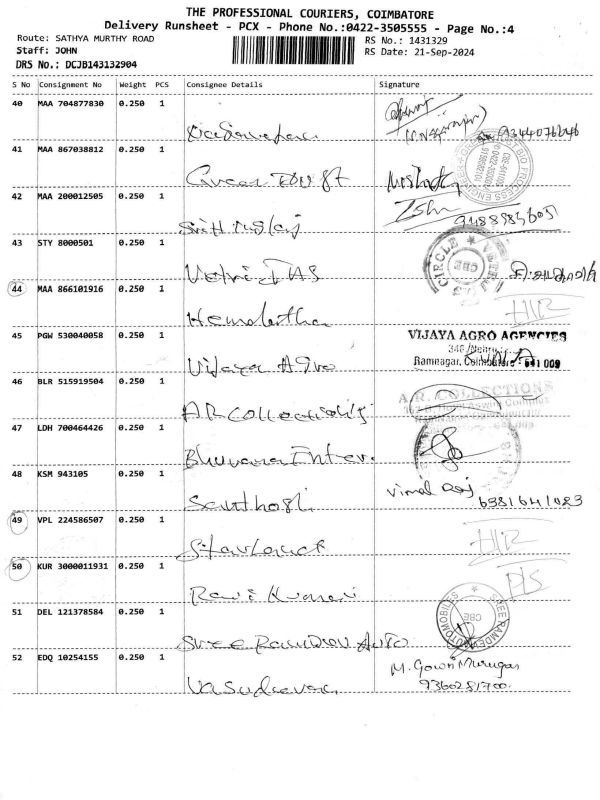 THE PROFESSIONAL COURIERS, COIMBATORE
Delivery Runsheet - PCX - Phone No.:0422-3505555 - Page No.:4
Route: SATHYA MURTHY ROAD
RS No.: 1431329
Staff: JOHN
RS Date: 21-Sep-2024
DRS No.: DCJB143132904
S No Consignment No Weight PCS Consignee Details Signature
40 MAA 704877830 0.250 1
9344076646
41 MAA 867038812 0.250 1
Green Trust
42 MAA 200012505 0.250 1
43 STY 8000501 0.250 1
Vetri IAS
CIRCLE
CBE
44 MAA 866101916 0.250 1
Hemalatha
45 PGW 530040058 0.250 1
Vijaya Agro
VIJAYA AGRO AGENCIES
346/Nehru
Ramnagar, Coimbatore - 641 009
46 BLR 515919504 0.250 1
A R Collections
A.R. COLLECTIONS
47 LDH 700464426 0.250 1
Bhuvana Enter.
48 KSM 943105 0.250 1
Santhosh
Vimal Raj
6381641023
49 VPL 224586507 0.250 1
50 KUR 3000011931 0.250 1
Ravi Kumari
51 DEL 121378584 0.250 1
Sree Ramdev Auto
SREE RAMDEV AUTOMOBILES
CBE
52 EDQ 10254155 0.250 1
Vasudevan
M. Gowri Murugan
9360281700